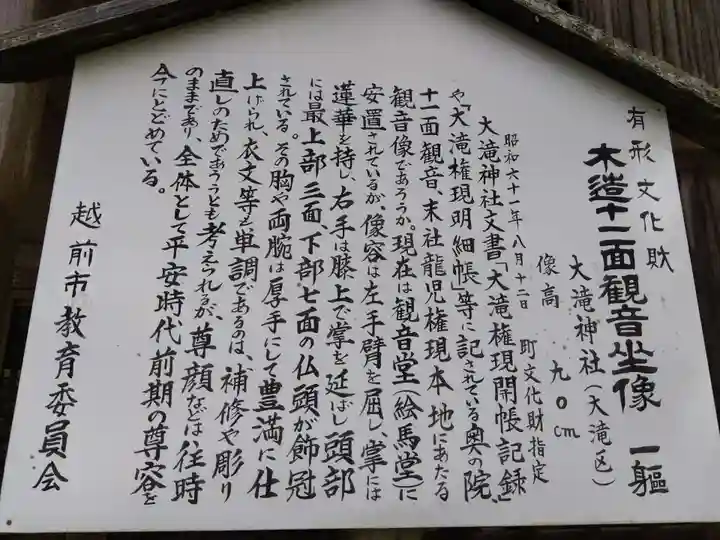 有形文化財
木造十一面観音坐像 一軀
大滝神社(大滝区)
像高 九〇cm
昭和六十一年八月十二日 町文化財指定
大滝神社文書「大滝権現開帳記録」
や「大滝権現明細帳」等に記されている奥の院、
十一面観音、末社龍児権現本地にあたる
観音像であろうか。現在は観音堂(絵馬堂)に
安置されているが、像容は左手臂を屈し、掌には
蓮華を持し、右手は膝上で掌を延ばし頭部
には最上部三面、下部七面の仏頭が飾冠
されている。その胸や両腕は厚手にして豊満に仕
上げられ、衣文等も単調であるのは、補修や彫り
直しのためであろうとも考えられるが、尊顔などは、往時
のままであり、全体として平安時代前期の尊容を
今にとどめている。
越前市教育委員会